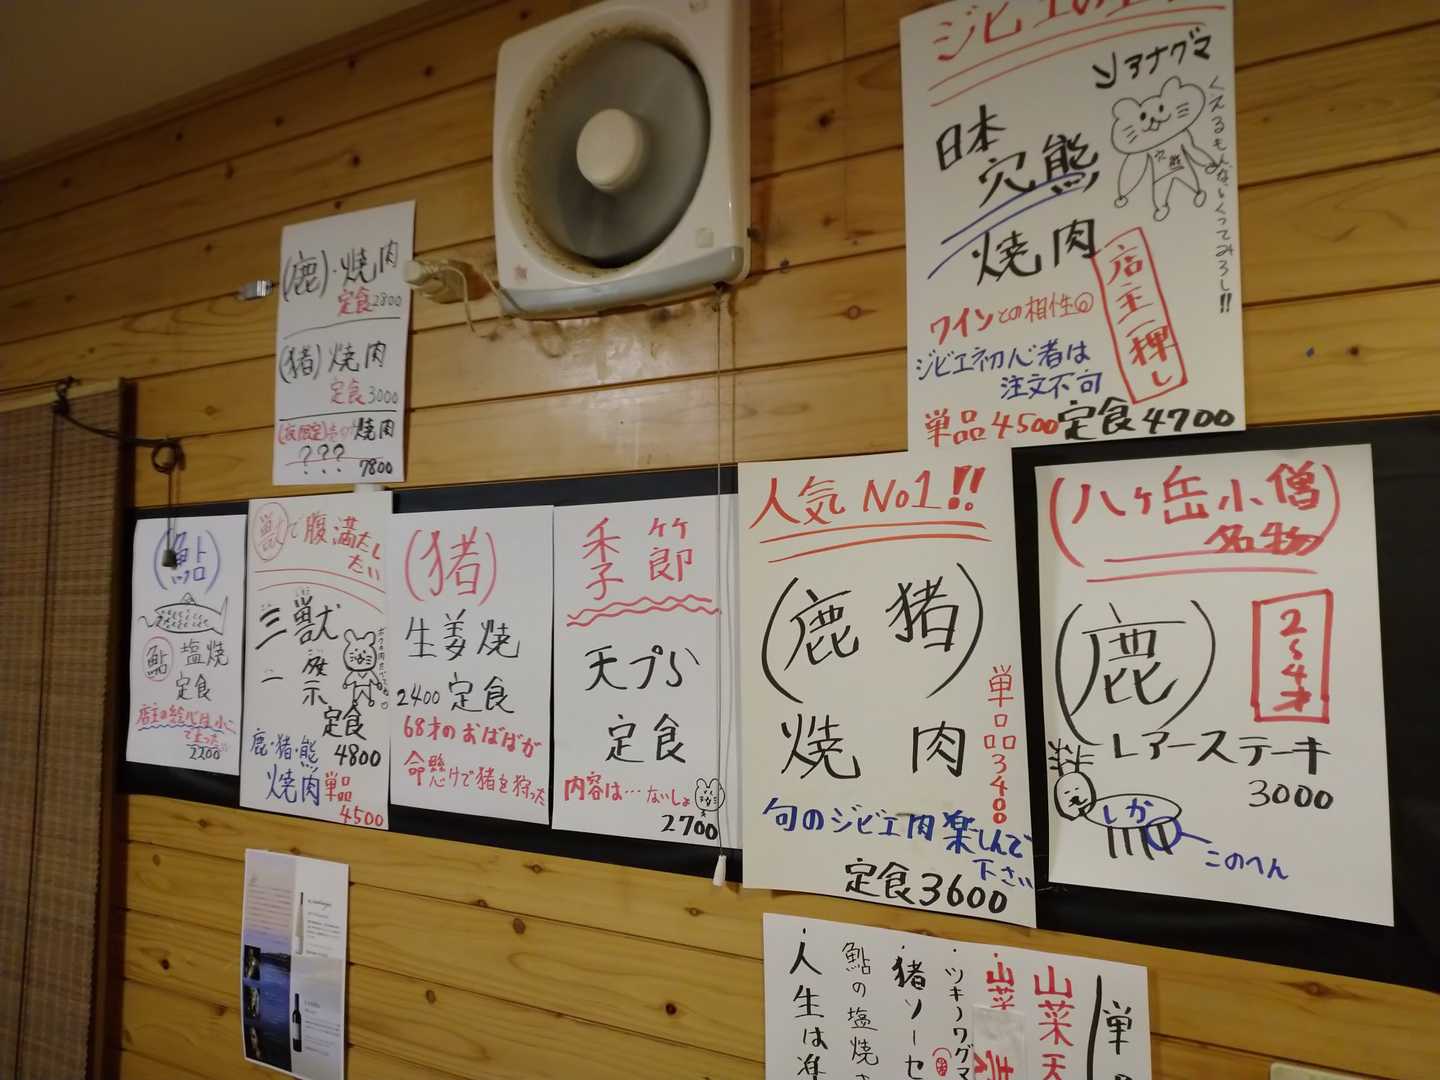 (鹿)・焼肉
定食2800
(猪)焼肉
定食3000
焼肉
???
7800
ジビエの
ソアナグマ
くえるもんならくってみろし!!
日本
穴熊
穴熊
焼肉
店主一押し
ワインとの相性◎
ジビエ初心者は
注文不可
単品4500定食4700
(鮎)
鮎塩焼
定食
店主の絵心は
2200
獣で腹満たし
たい
三獣
定食
4800
鹿・猪・熊
焼肉単品
4500
(猪)
生姜焼
2400定食
68才のおばばが
命懸けで猪を狩った
季節
天プラ
定食
内容は…ないしょ
2700
人気No1!!
(鹿猪)
焼肉
単品3400
旬のジビエ肉楽しんで
下さい
定食3600
(八ヶ岳小僧
名物)
(鹿)
2〜4才
レアーステーキ
3000
しか
このへん
単
山菜天
山菜
・ツキノワグマ
・猪ソーセ
鮎の塩焼
・人生は準